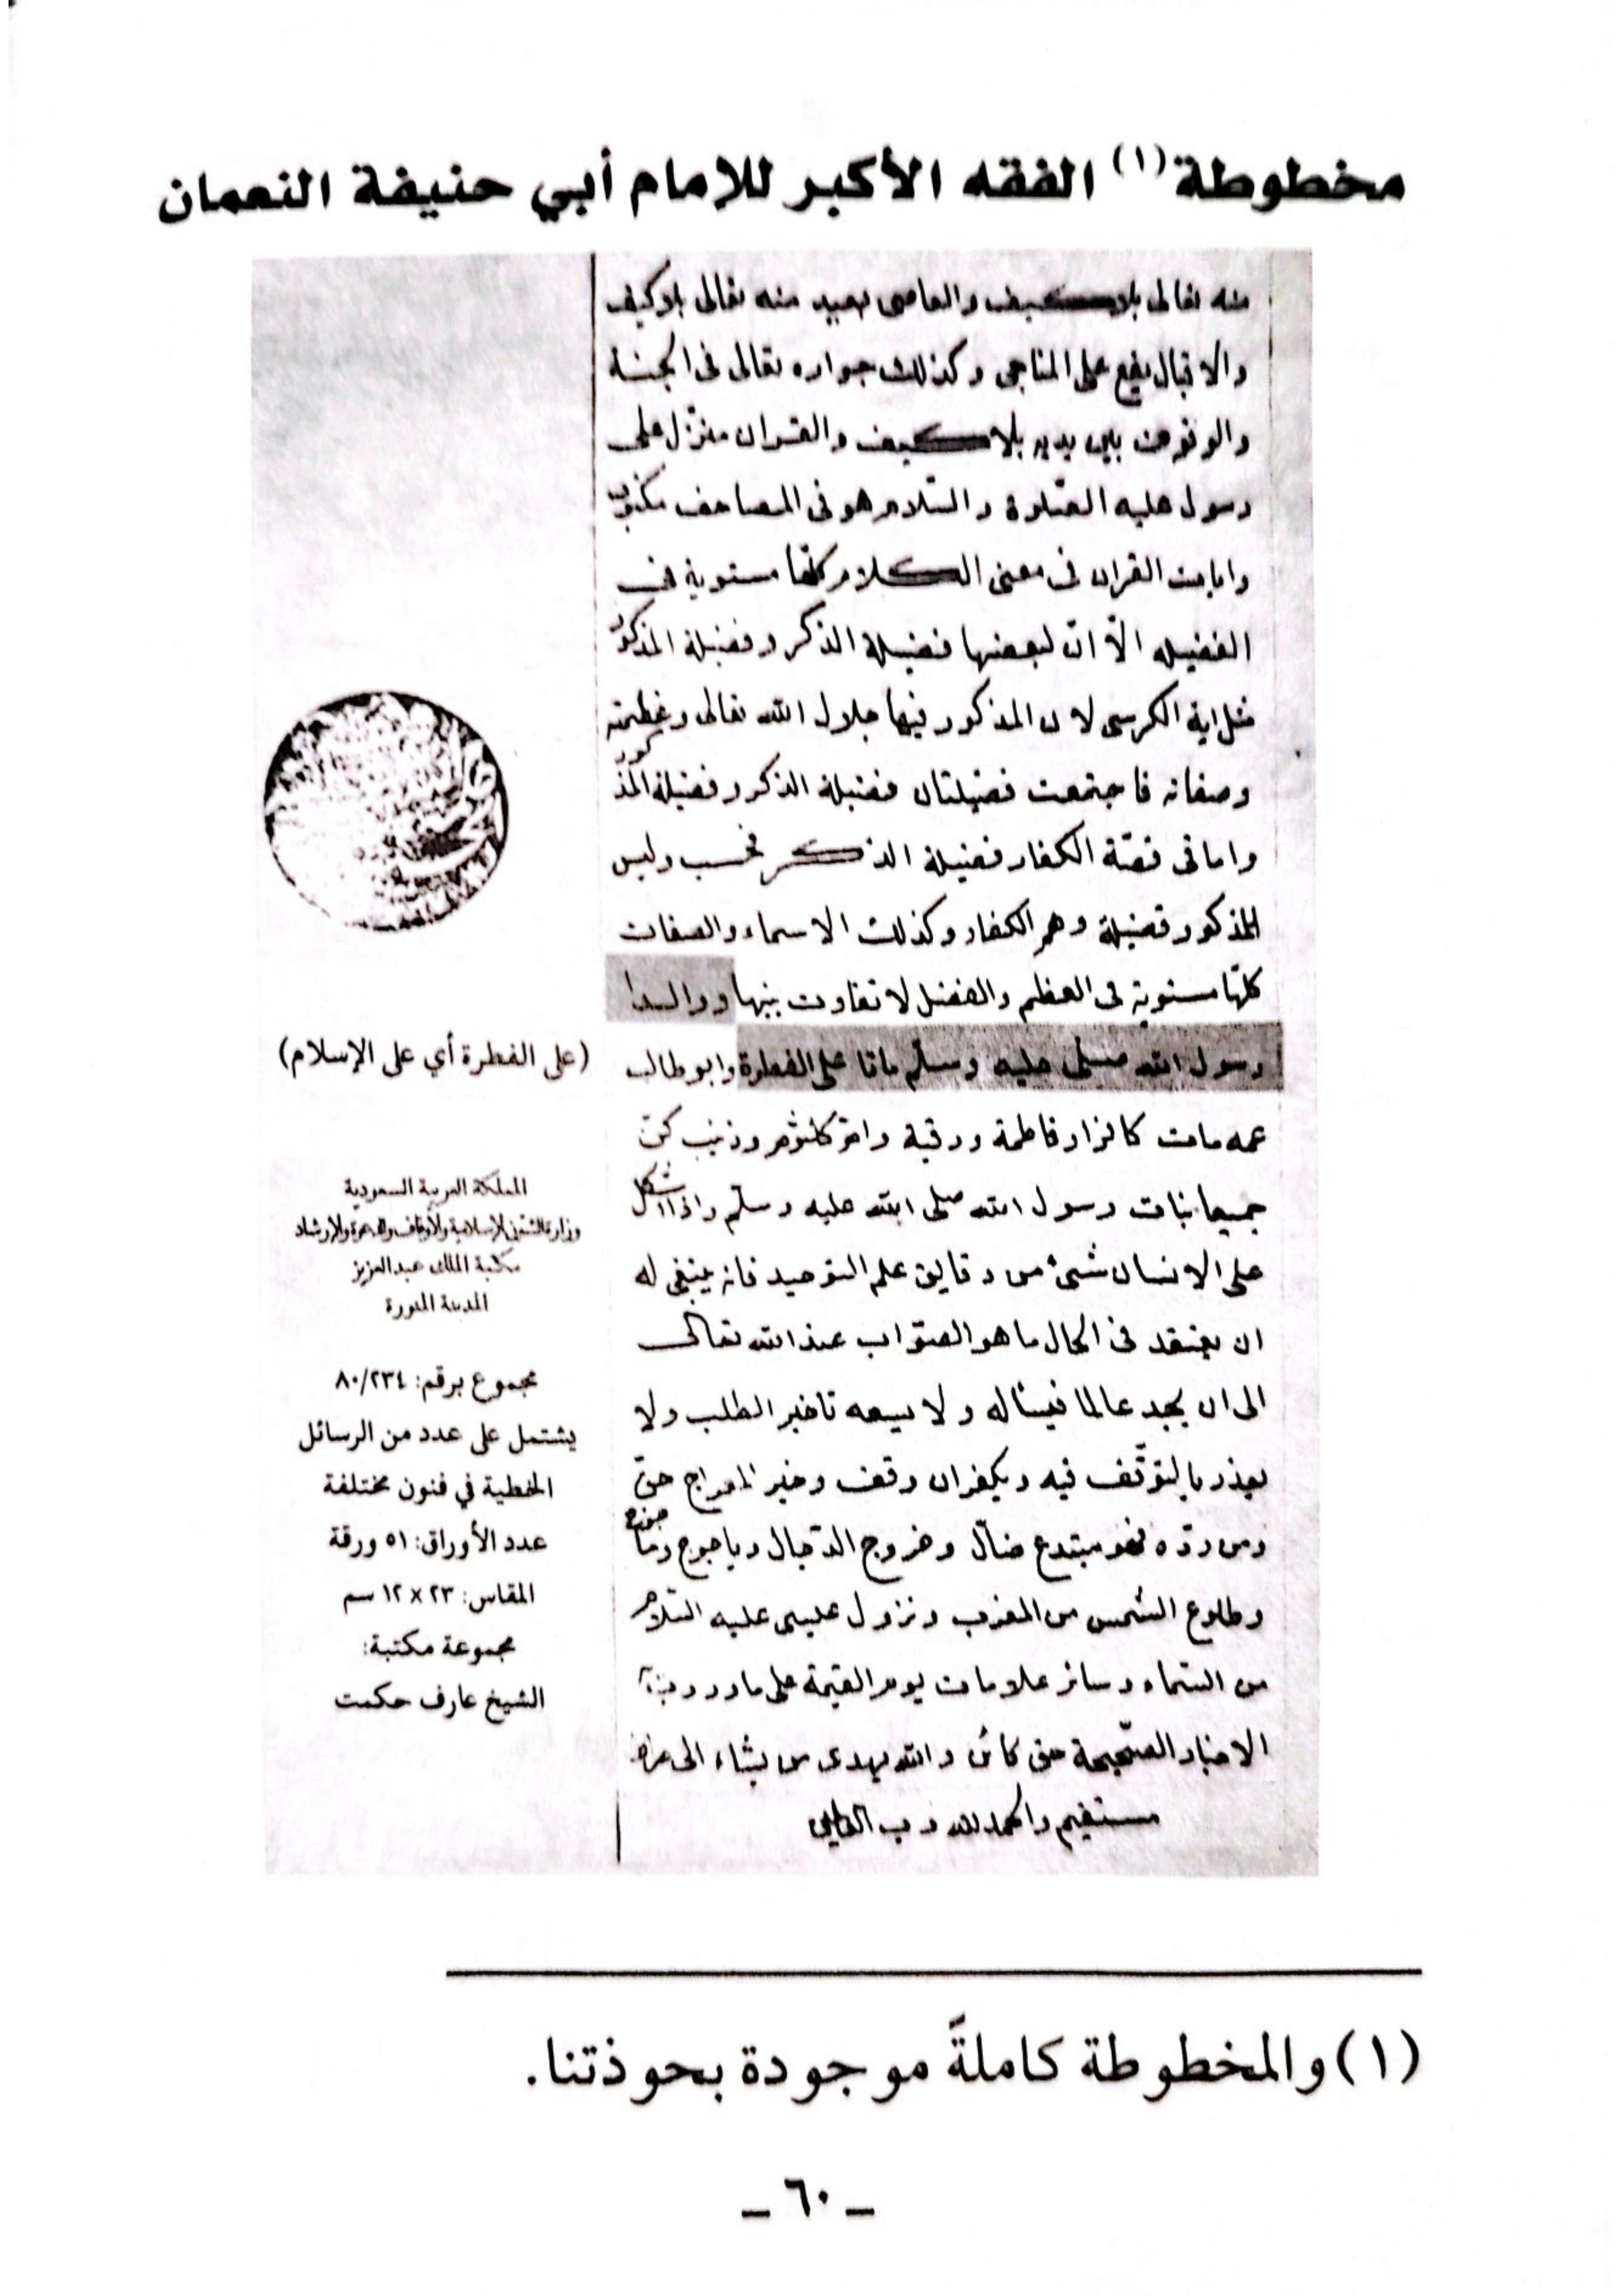 مخطوطة(١) الفقه الأكبر للإمام أبي حنيفة النعمان
منه تعالى بلا كيف والعاصى بعيد منه تعالى بلا كيف
والاقبال يقع على المناجى وكذلك جواره تعالى فى الجنة
والوقوف بين يديه بلا كيف والقران منزل على
رسول عليه الصلوة والسلام هو فى المصاحف مكتوب
وايات القران فى معنى الكلام كلها مستوية فى
الفضيله الّا انّ لبعضها فضيلة الذكر وفضيلة المذكور
مثل اية الكرسى لان المذكور فيها جلال الله تعالى وعظمته
وصفاته فاجتمعت فضيلتان فضيلة الذكر وفضيلة المذكور
واما فى قصّة الكفار فضيلة الذكر فحسب وليس
للمذكور فضيلة وهم الكفار وكذلك الاسماء والصفات
كلّها مستوية فى العظم والفضل لا تفاوت بينها ووالدا
رسول الله صلى عليه وسلّم ماتا على الفطرة وابو طالب
(على الفطرة أي على الإسلام)
عمه مات كافرا وفاطمة ورقية وام كلثوم وزينب كنّ
جميعا بنات رسول الله صلى الله عليه وسلّم واذا اشكل
على الانسان شئ من دقايق علم التوحيد فانه ينبغى له
ان يعتقد فى الحال ما هو الصوّاب عند الله تعالى
الى ان يجد عالما فيسأله ولا يسعه تاخير الطلب ولا
يعذر بالتوقّف فيه ويكفر ان وقف وخبر المعراج حق
ومن ردّه فهو مبتدع ضالّ وخروج الدّجال وياجوج وماجوج
وطلوع الشمس من المغرب ونزول عيسى عليه السّلام
من السّماء وسائر علامات يوم القيمة على ما وردت به
الاخبار الصّحيحة حق كائن والله يهدى من يشاء الى صراط
مستقيم والحمد لله رب العالمين
المملكة العربية السعودية
وزارة الشئون الإسلامية والأوقاف والدعوة والإرشاد
مكتبة الملك عبدالعزيز
المدينة المنورة
مجموع برقم: ٨٠/٢٣٤
يشتمل على عدد من الرسائل
الخطية في فنون مختلفة
عدد الأوراق: ٥١ ورقة
المقاس: ٢٣ × ١٢ سم
مجموعة مكتبة:
الشيخ عارف حكمت
(١) والمخطوطة كاملةً موجودة بحوذتنا.
– ٦٠ –